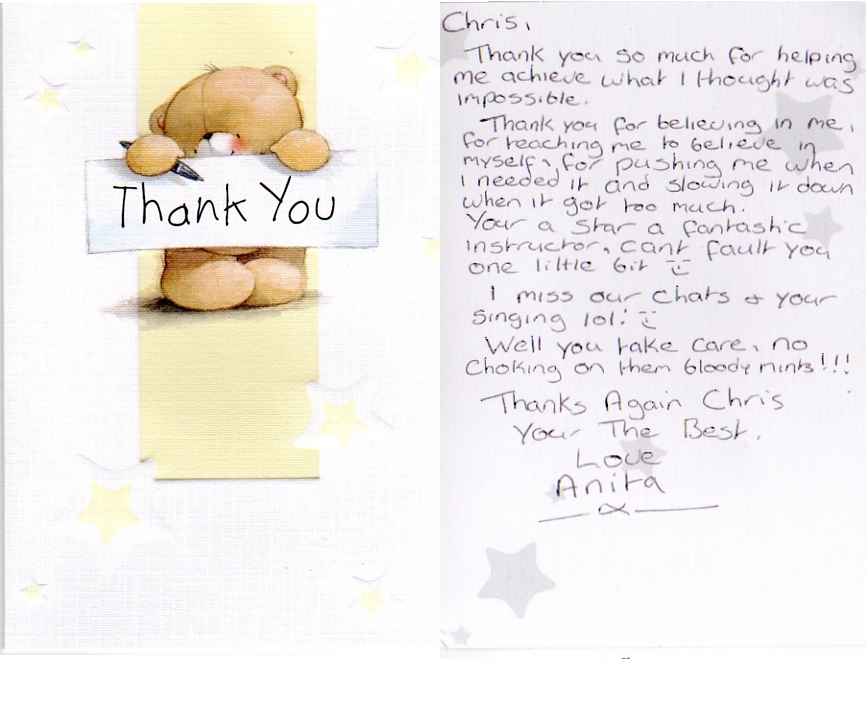 Thank You
Chris,
Thank you so much for helping
me achieve what I thought was
impossible.
Thank you for believing in me,
for teaching me to believe in
myself, for pushing me when
I needed it and slowing it down
when it got too much.
Your a star a fantastic
instructor, cant fault you
one little bit
I miss our chats & your
singing lol!
Well you take care, no
choking on them bloody mints!!!
Thanks Again Chris
Your The Best.
Love
Anita